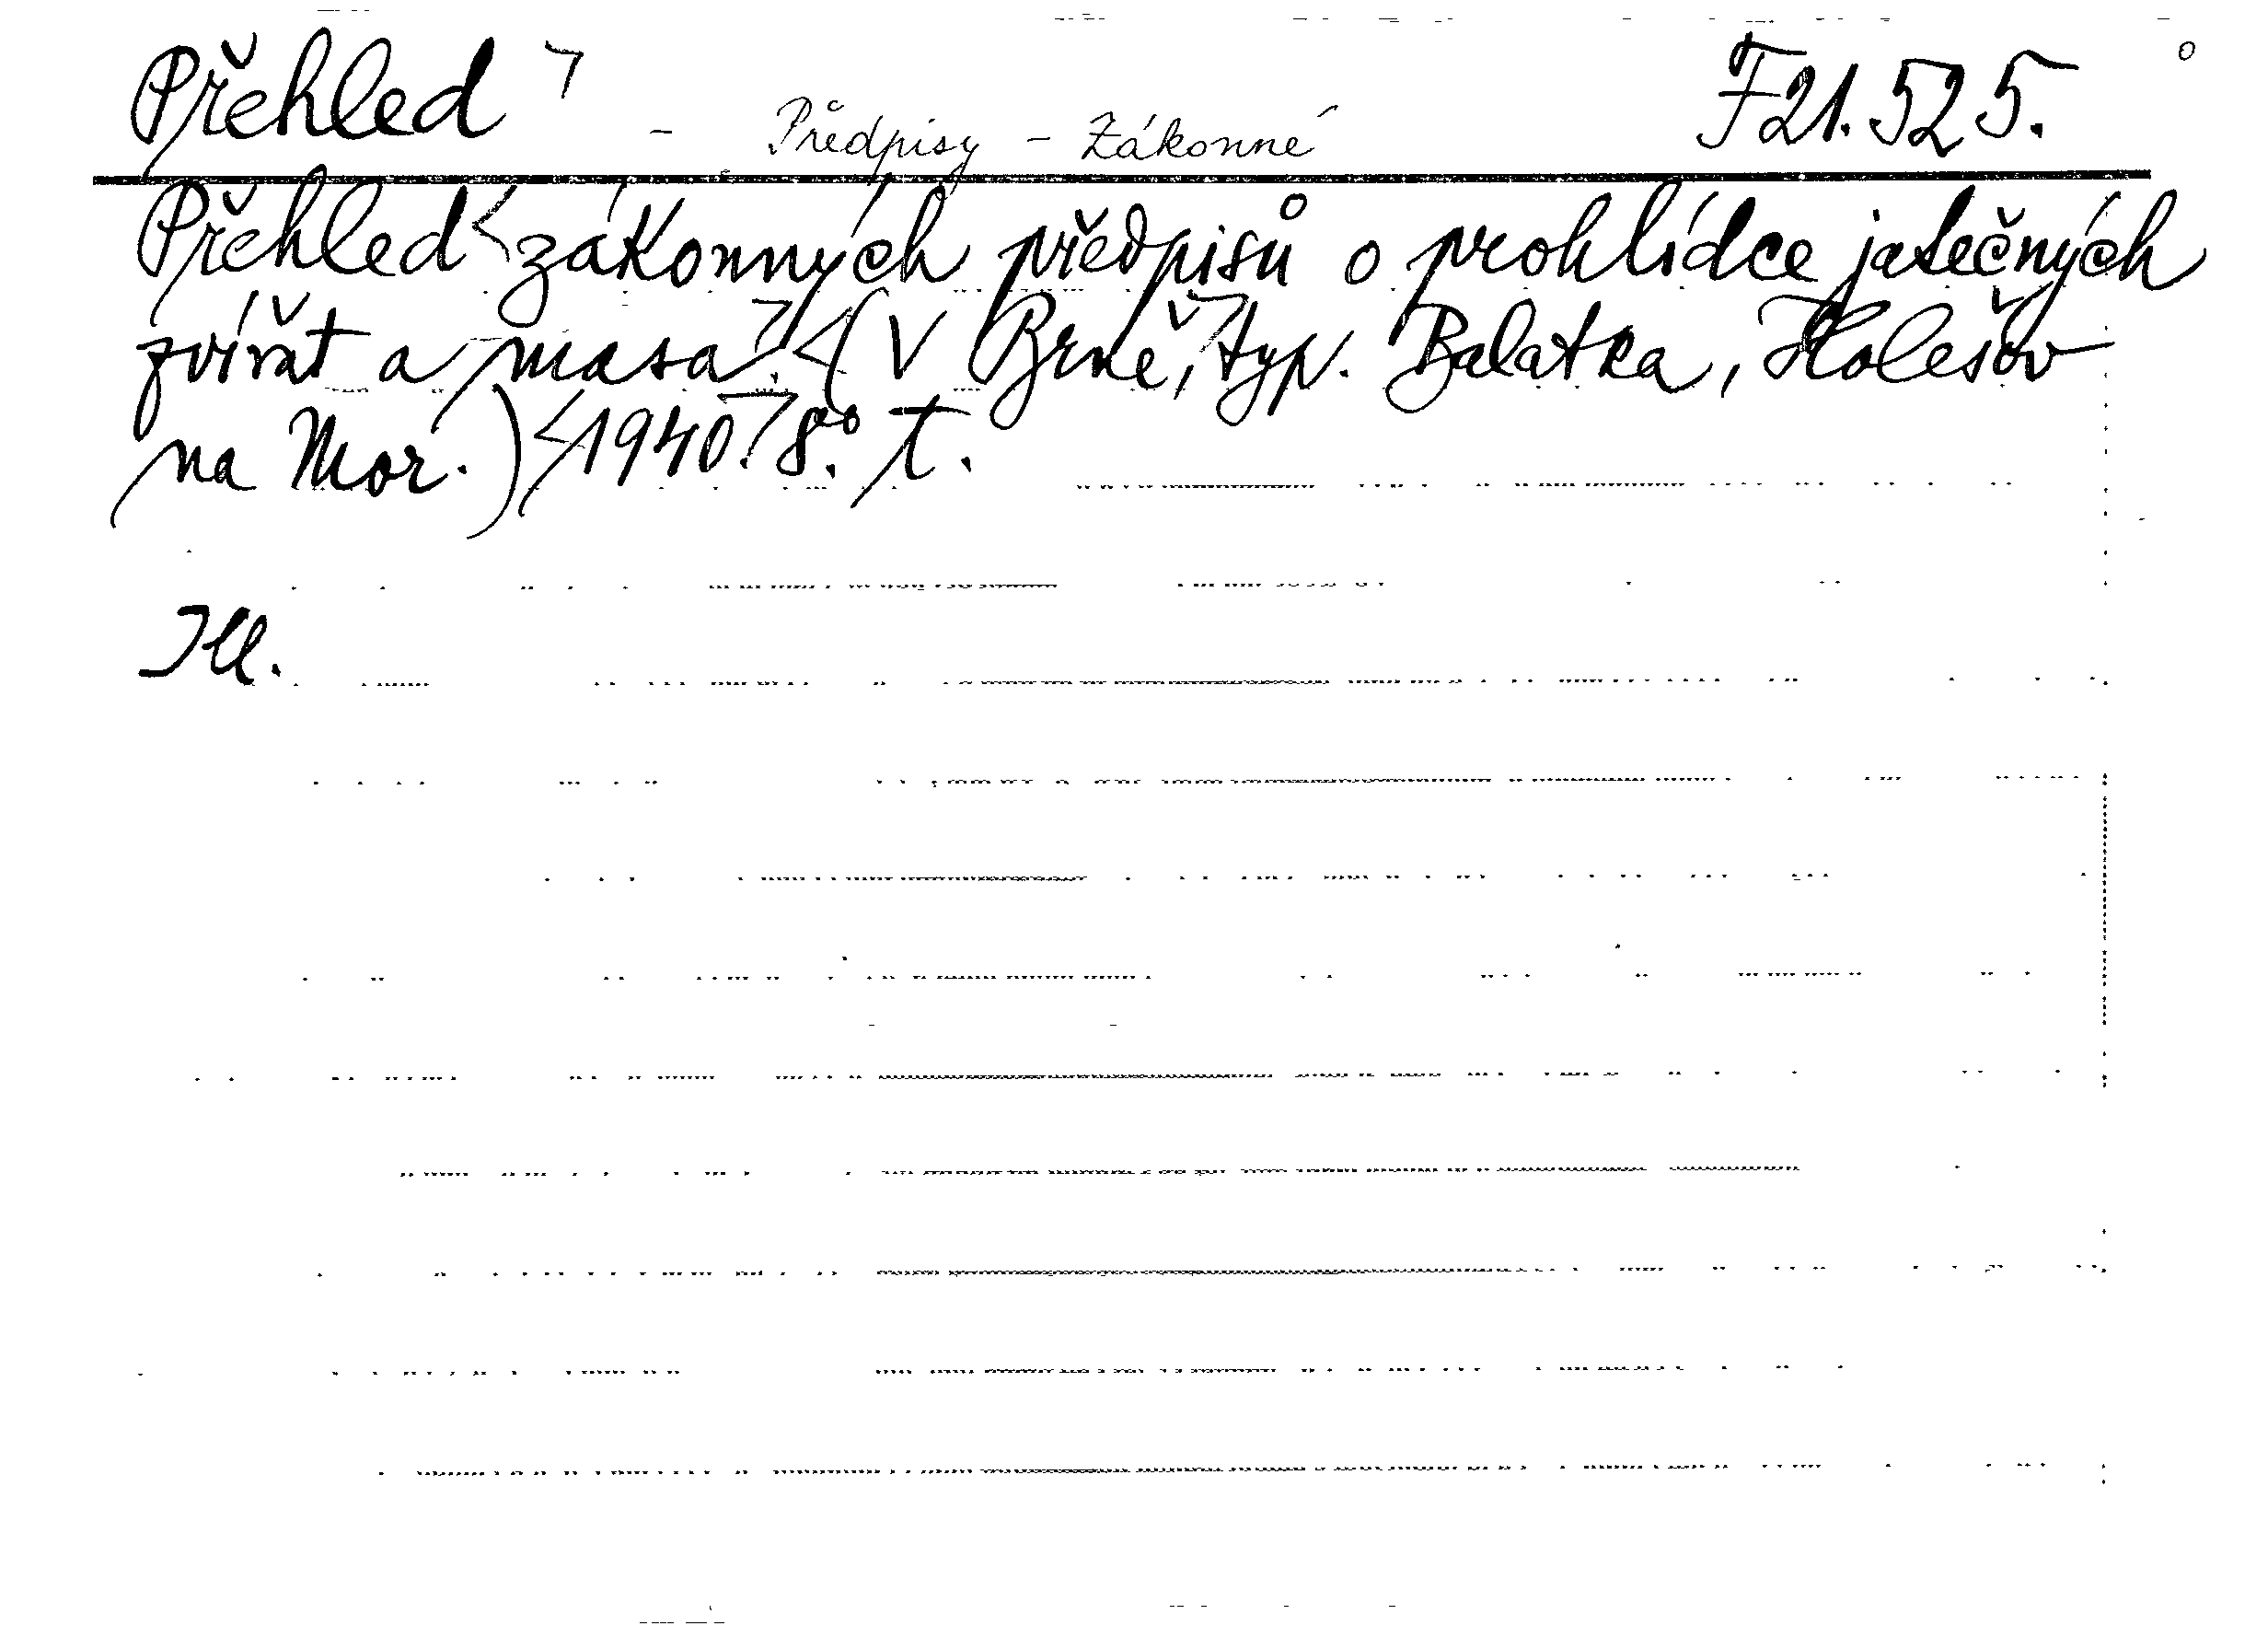 Přehled - Předpisy - Zákonné F21.525.
Přehled zákonných předpisů o prohlídce jatečných
zvířat a masa. (V Brně, typ. Balatka, Holešov
na Mor.) 1940. 8° t.
Ill.